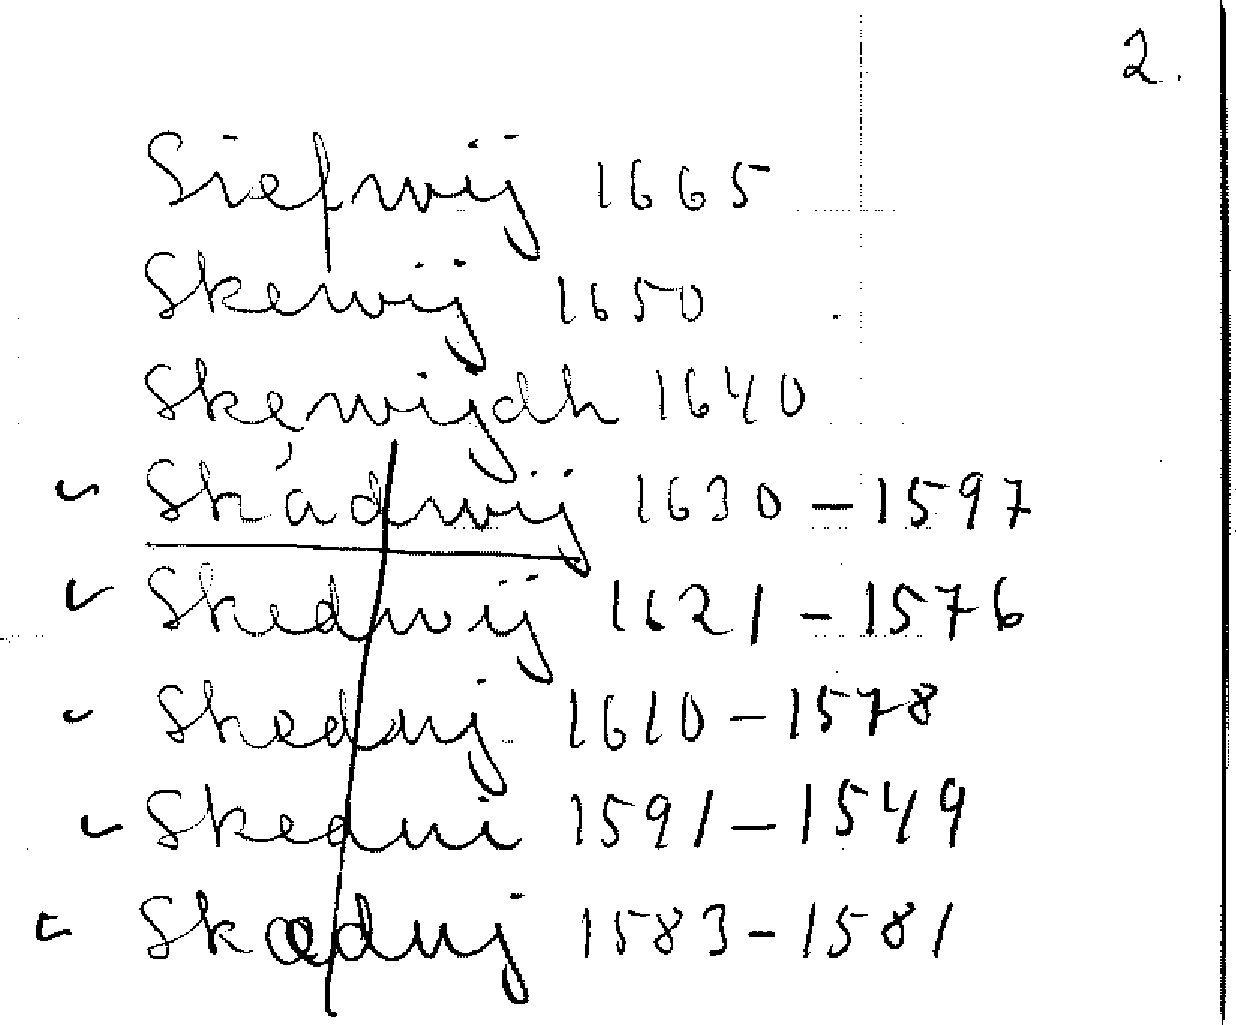 2.
Siefwij 1665
Skewij 1650
Skęwijdh 1640
Skådwij 1630 – 1597
Skedwij 1621 – 1576
Skeduj 1610 – 1578
Skedui 1591 – 1549
Skæduj 1583 – 1581